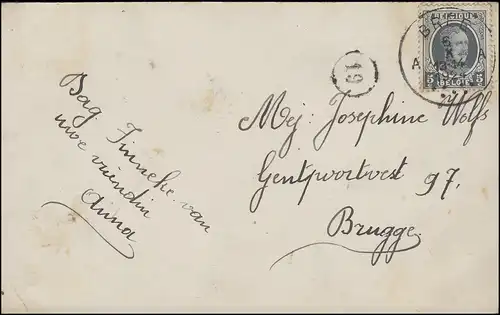 Dag Finneke van
uwe vriendin
Anna
19
Mej: Josephine Wolfs
Gentpoortvest 97.
Brugge.
BELGIQUE
5 5
BELGIË
5
X
13-14
A A